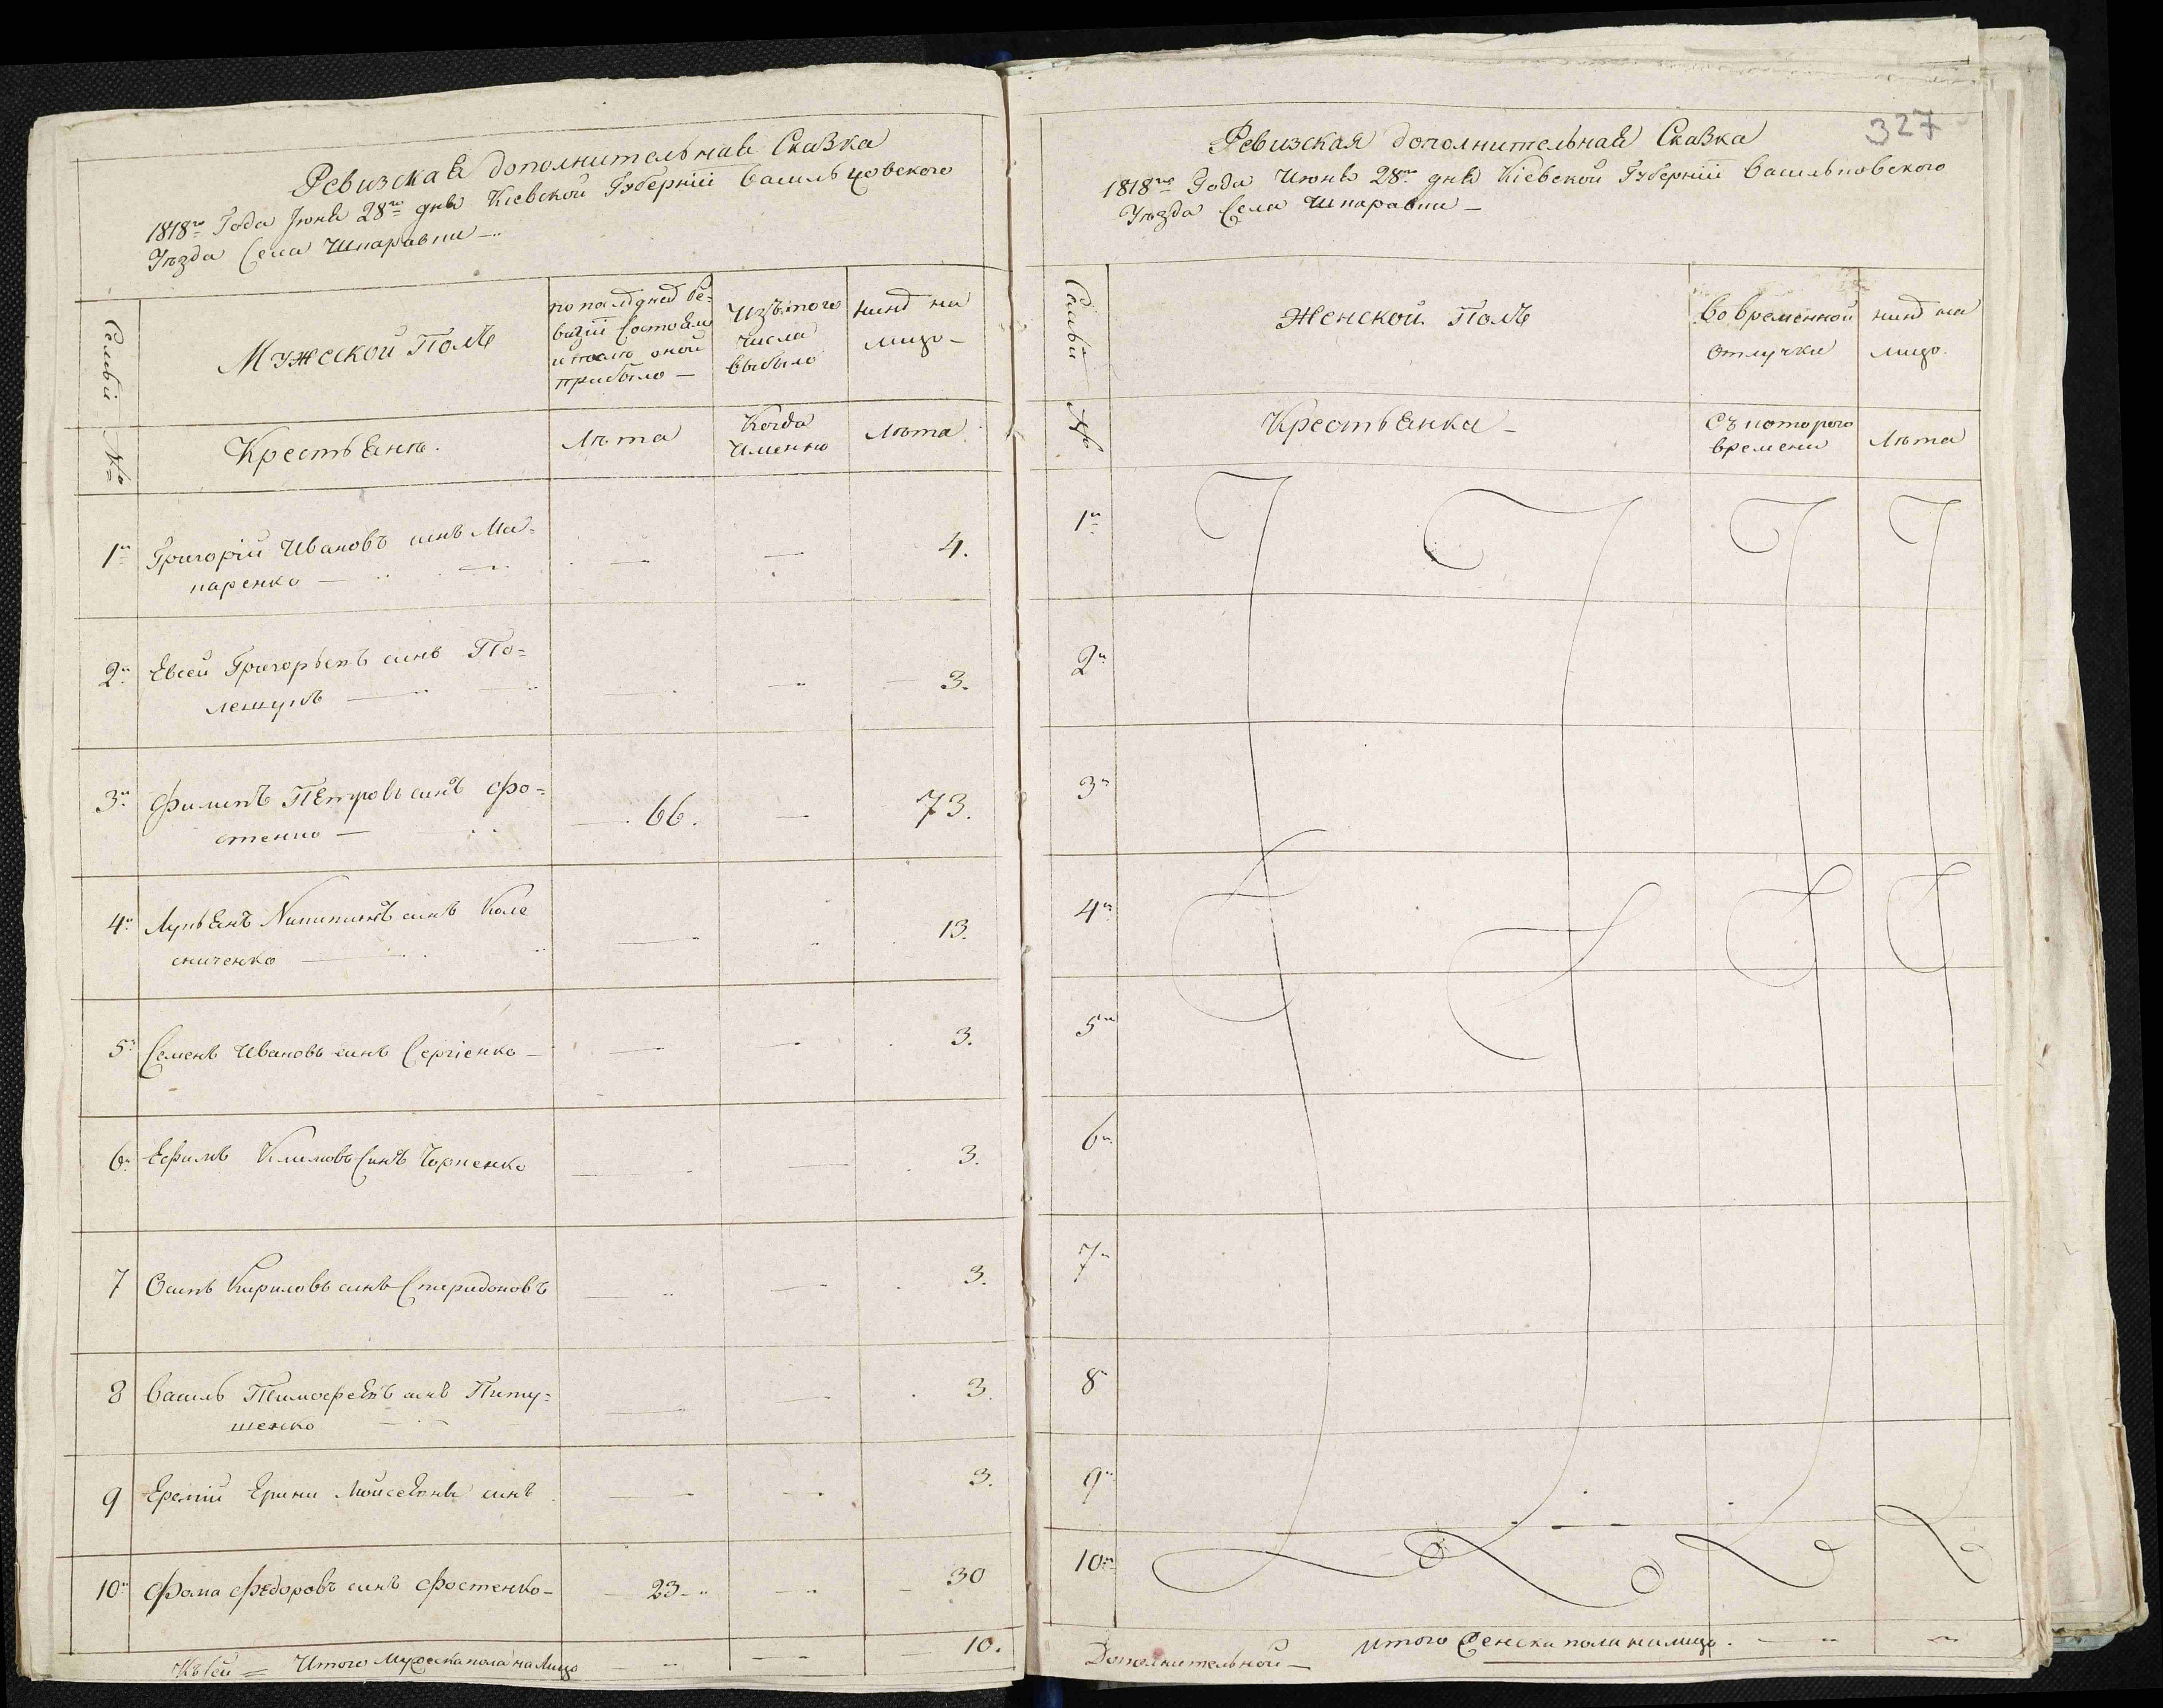 Ревизская дополнительная Сказка
1818го Года Июня 28го дня Кіевской Губерніи Васильковского
Уѣзда Села Шпаравки —
Семьи №
Мужеской Полъ
по последней ре=
визіи состояло
и после оной
прибыло —
Изъ того
числа
выбыло
нынѣ на
лицо —
Крестьянѣ.
Лѣта
Когда
Именно
Лѣта
1й Григорій Ивановъ синъ Ма= — — 4.
каренко —
2й Евсей Григорьевъ синъ По= — — 3.
лещукъ —
3й Филипъ Петровъ синъ Фо= 66. — 73.
стенко —
4й Лукьянъ Никитинъ синъ Коле — 13.
сниченко —
5й Семенъ Ивановъ синъ Сергіенко — — — 3.
6й Ефимъ Климовъ Синъ Чорненко — — 3.
7 Осипъ Кириловъ синъ Спиридоновъ — — 3.
8 Василь Тимофеевъ синъ Питу= — — 3.
шенко
9 Еремій Ерини Мойсеевны синъ — — 3.
10й Фома Федоровъ синъ Фостенко — 23 — — 30
Къ сей = Итого Мужеска пола на Лицо — — 10.
327
Ревизская дополнительная Сказка
1818го Года Июня 28го дня Кіевской Губерніи Васильковского
Уѣзда Села Шпаравки —
Семьи №
Женской Полъ
Во временной
отлучки
нинѣ на
лицо.
Крестьянки —
Съ которого
времени
Лѣта
1й
2й
3й
4й
5й
6й
7й
8
9й
10й
Дополнительной — Итого Женска пола на лицо. — —